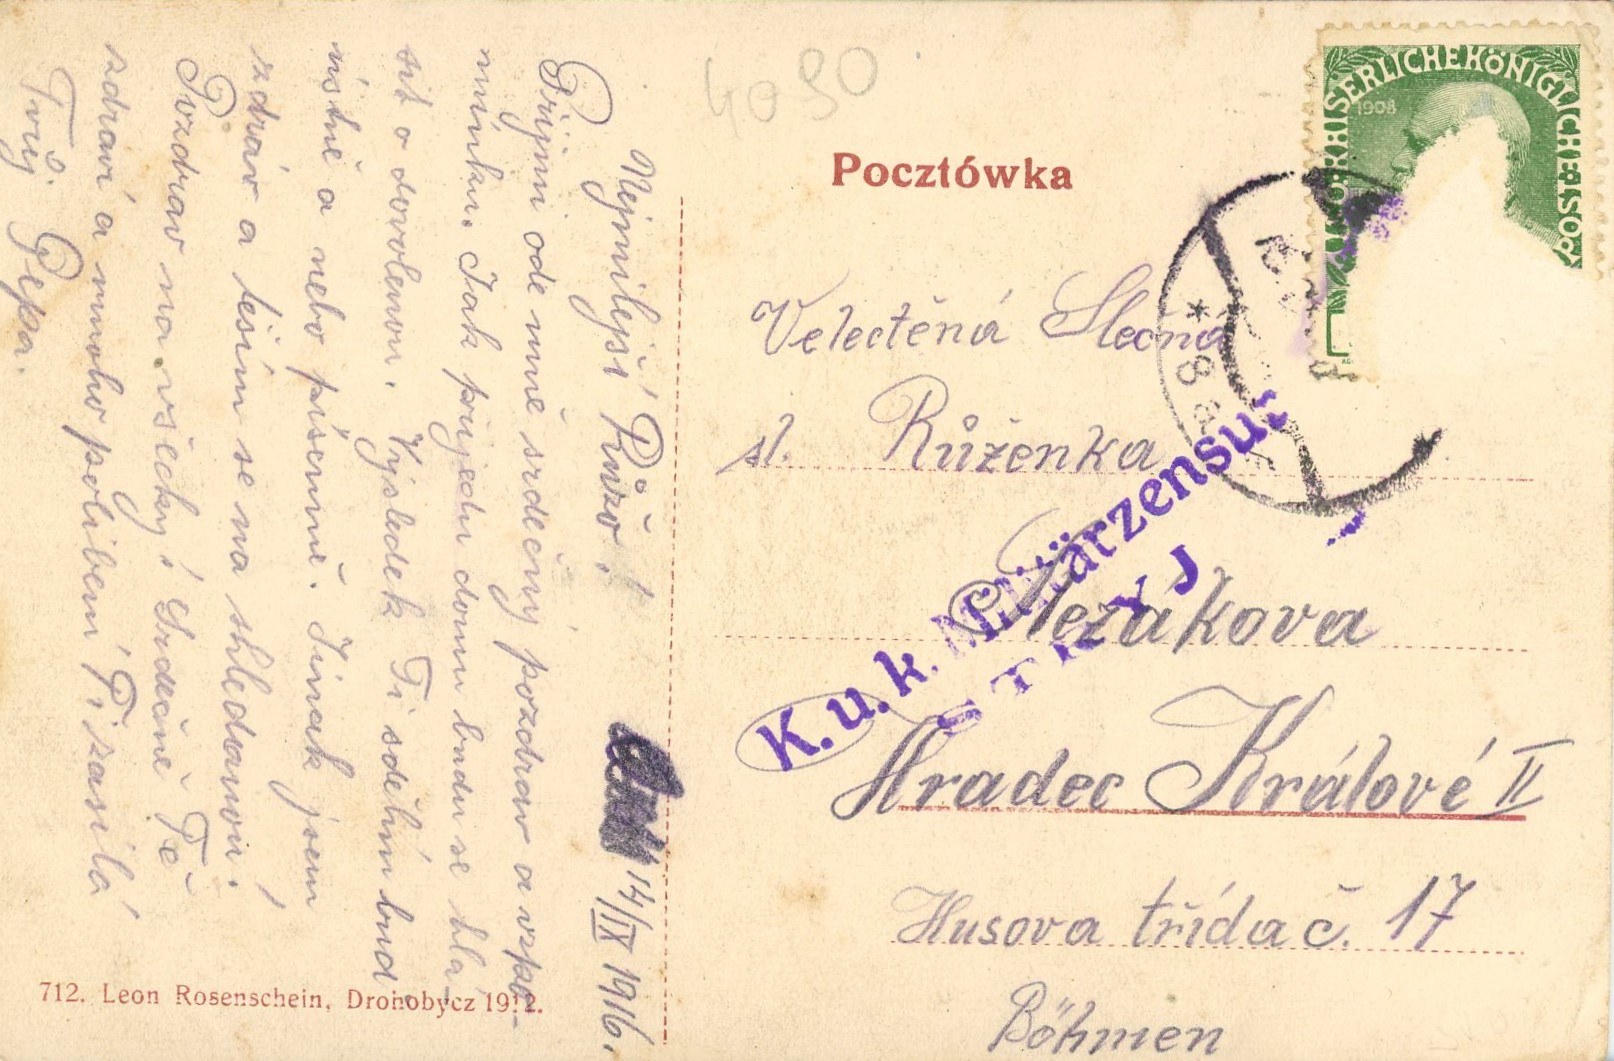 4090
Pocztówka
KAISERLICHE KÖNIGLICHE ÖS
1908
* 8
K.u.k. Militärzensur
STRYJ
Velectěná Slečna
sl. Růženka
Hradec Králové II
Husova třída č. 17
Böhmen
14/IX 1916.
Nejmilejší Růžo!
Přijmi ode mne srdečný pozdrav a vzpo-
mínku. Jak přijedu domu budu se hlá-
sit o dovolenou. Výsledek Ti sdělím buď
ústně a nebo písemně. Jinak jsem
zdráv a těším se na shledanou.
Pozdrav na všecky! Srdečně Tě
zdraví a mnoho políbení Ti zasílá
Tvůj Pepa.
712. Leon Rosenschein, Drohobycz 1912.